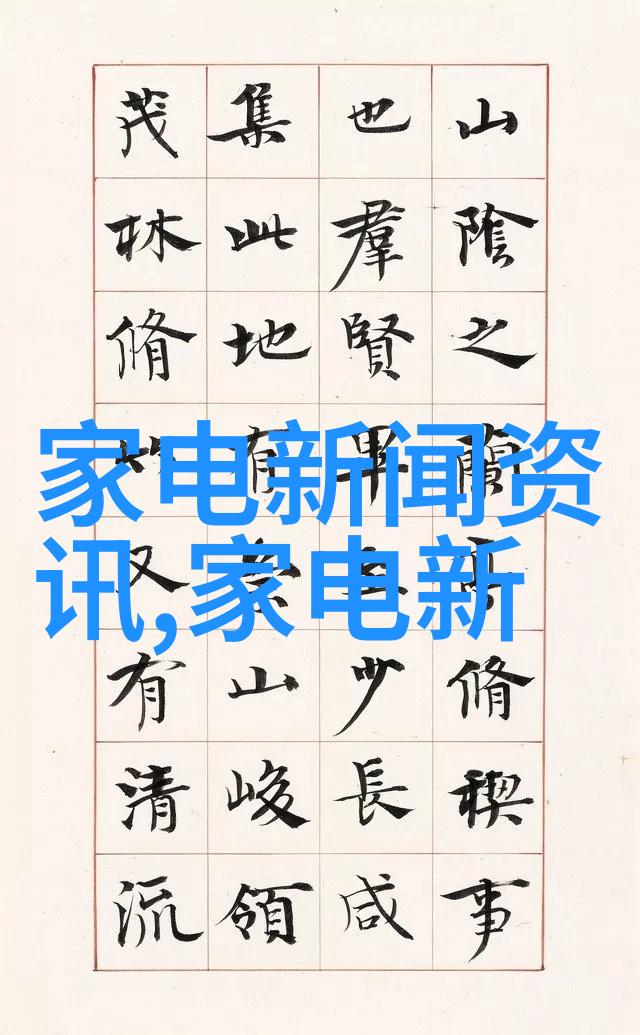 山陰之蘭亭脩稧事
也羣賢畢至少長咸
集此地有崇山峻領
茂林脩竹又有清流
家电新闻资
讯,家电新